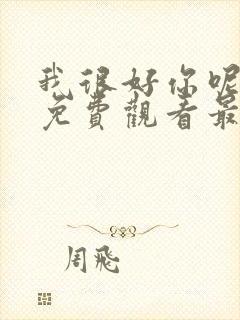 我很好你呢
免費觀看最
周飛